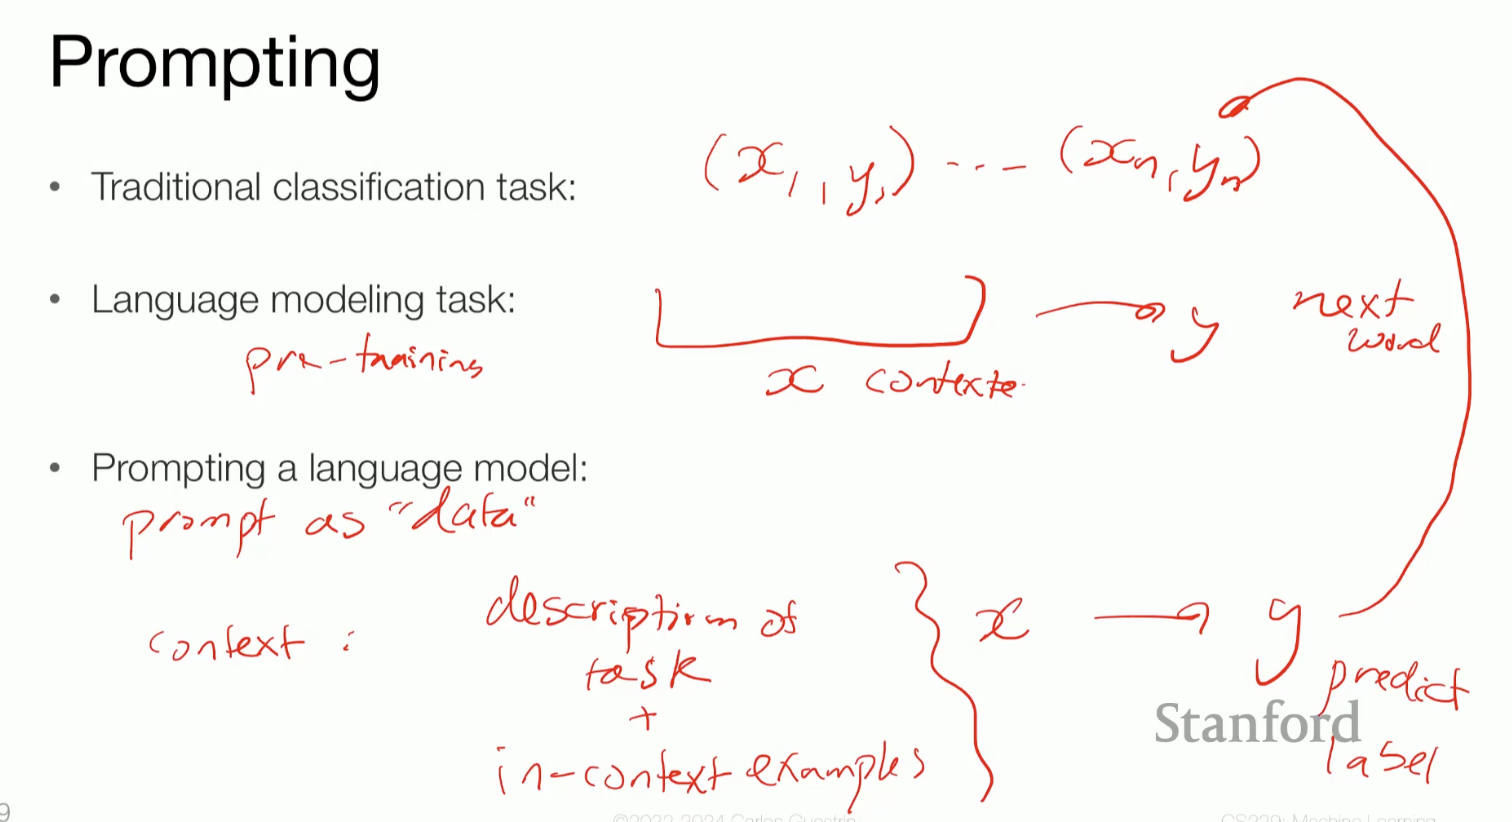 Prompting
• Traditional classification task: (x₁, y₁) --- (xₙ, yₙ)
• Language modeling task: y next
word
pre-training
x contexte
• Prompting a language model:
prompt as "data"
context : description of
task
+
in-context examples
x y
predict
label
Stanford
9
©2022-2024 Carlos Guestrin
CS229: Machine Learning